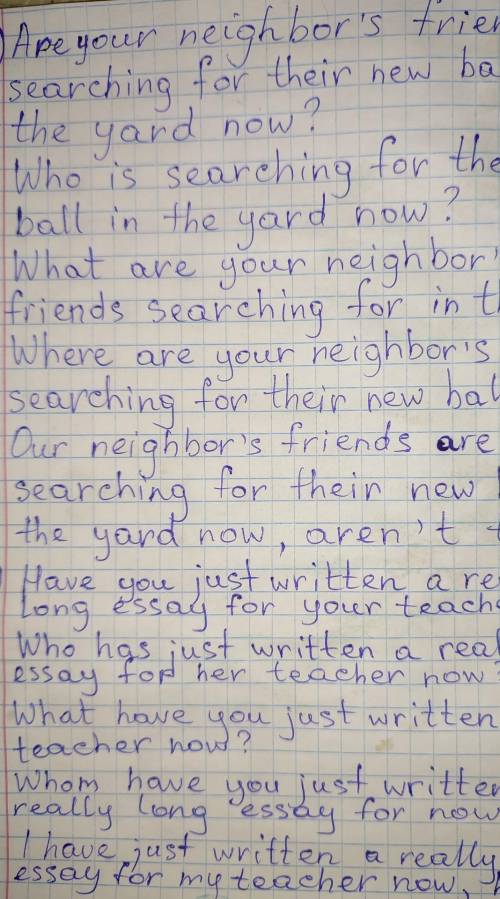 Are your neighbor's
searching for their new
the yard now?
Who is searching for
ball in the yard now?
What are your
friends searching for in
Where are your neighbor's
searching for their new
Our neighbor's friends are
searching for their new
the yard now, aren't
Have you just written a
long essay for your
Who has just written a
essay for her teacher now
What have you just written
teacher now?
Whom have you just
really long essay for now
I have just written a really
essay for my teacher now,